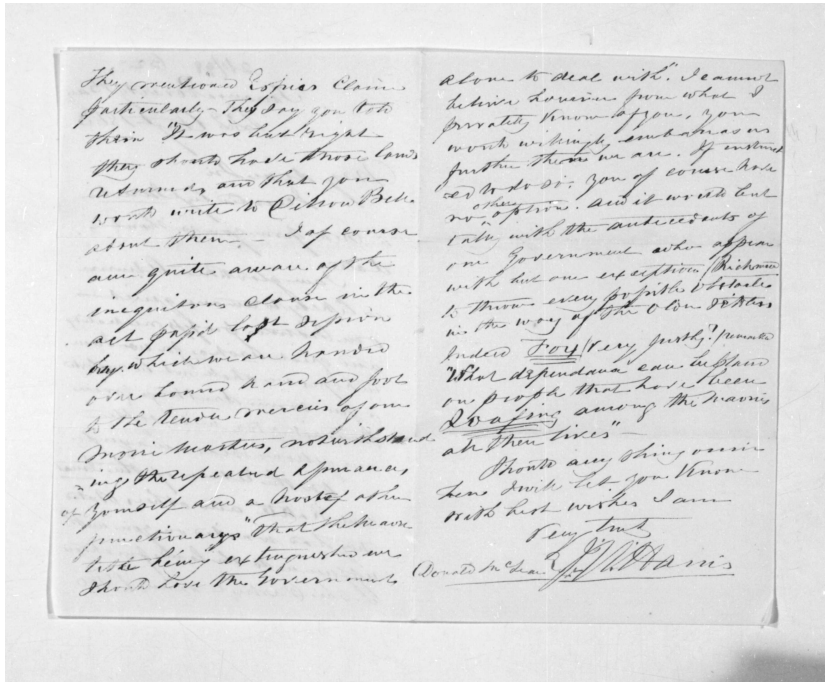 They mentioned Espies Claim
particularly - They say you told
them "It was but right
they should have those lands
returned, and that you
would write to Dillon Bell
about them - I of course
am quite aware of the
iniquitous clause in the
act passd last Session
by which we are handed
over bound hand and foot
to the tender mercies of our
Maori Masters, notwithstand
ing the repeated assurances,
of yourself and a host of other
functionarys "that the Maori
title being extinguished we
should have the Government
alone to deal with". I cannot
believe however from what I
privately know of you, you
would willingly embarrass us
further then we are. If instruct
ed to do so, you of course have
no other option. and it would but
tally with the antecedents of
our Government who appear
with but one exception (Richmond
to throw every possible obstacle
in the way of the Olde Settlers
Indeed Fox (very justly!) remarked
"What dependance can be placed
on people that have been
Loafing among the Maoris
all their lives" -
Should any thing occur
here I will let you know
With best wishes I am
very truly
J. W. Harris
(Donald McLean